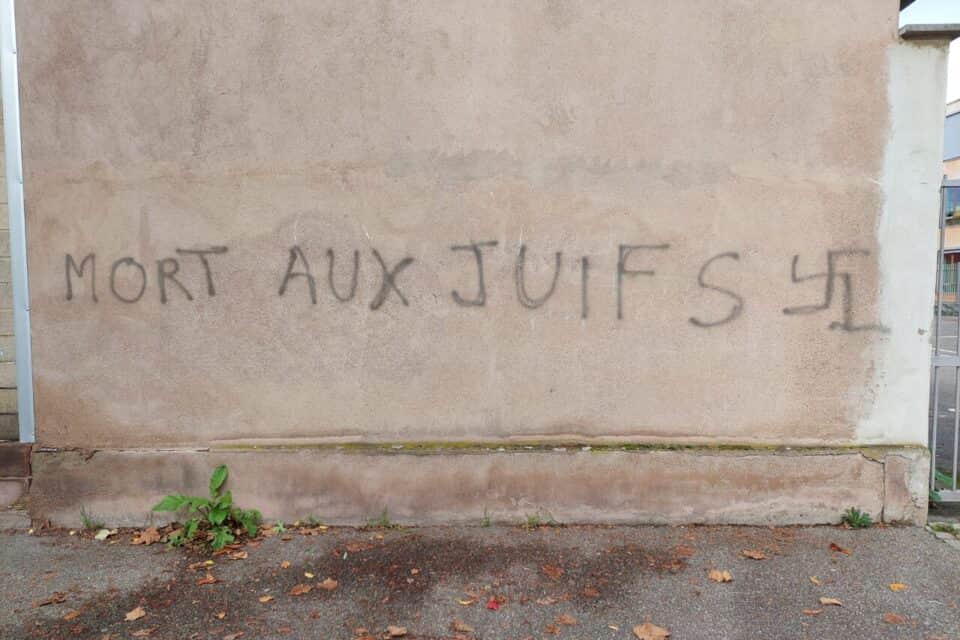 MORT AUX JUIFS